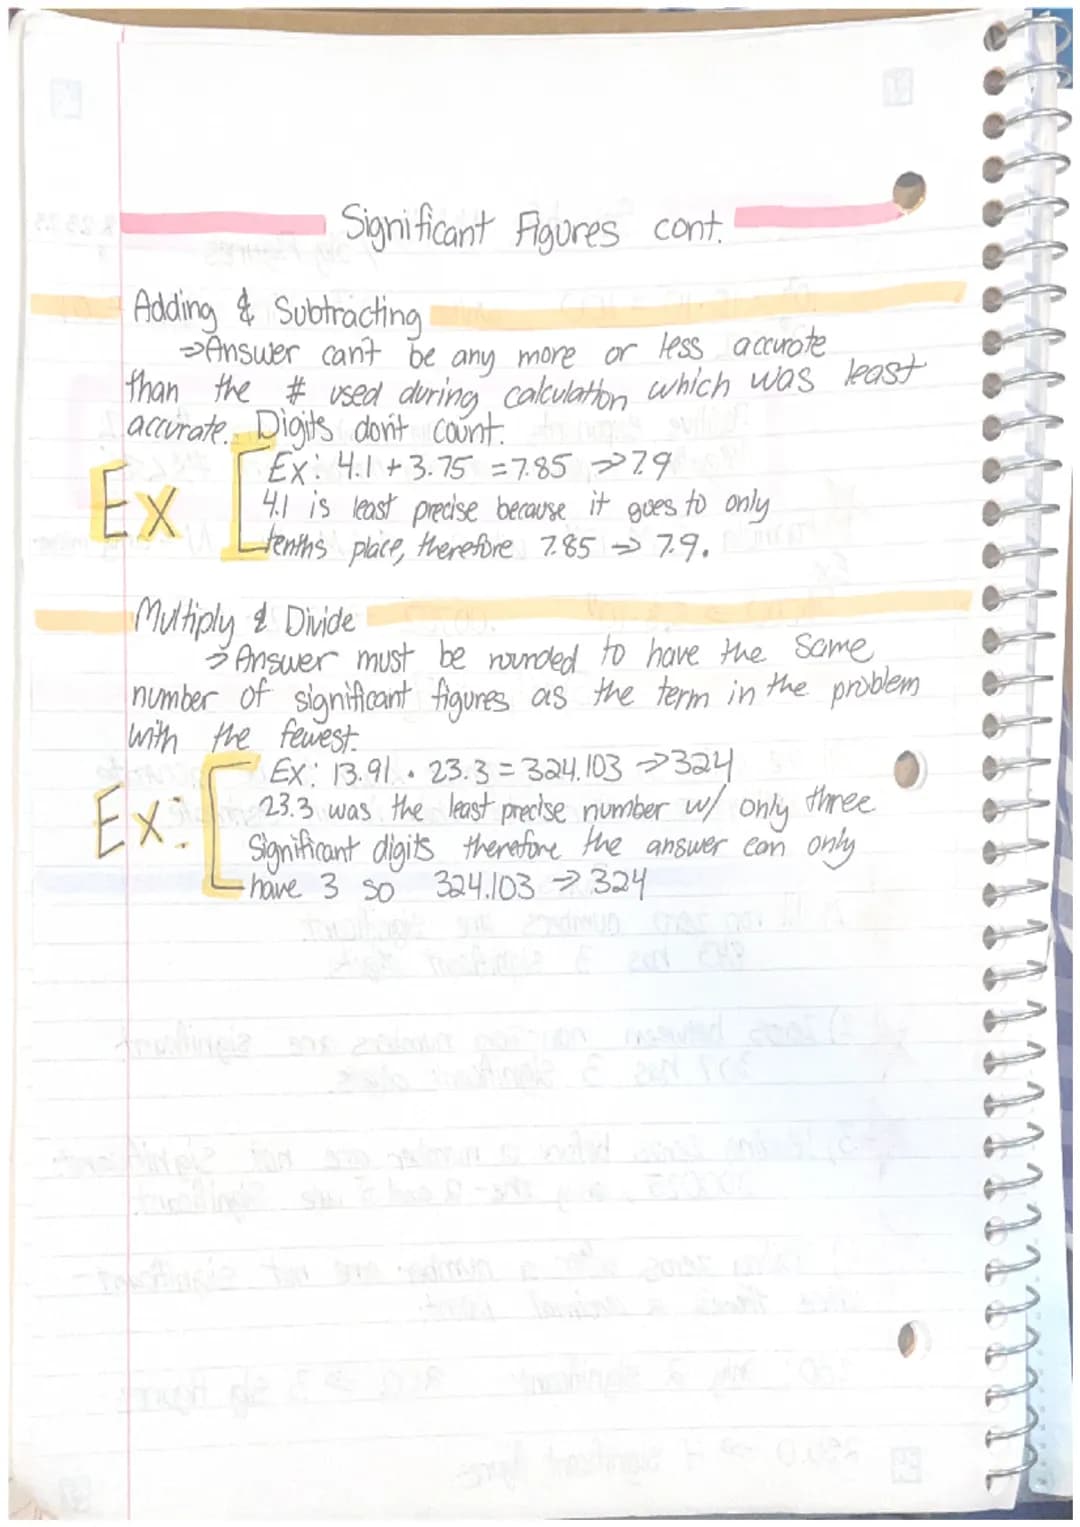 Significant Figures cont.
Adding & Subtracting
⇒Answer can't be any more or less accurate
than the # used during calculation which was least
accurate. Digits don't count.
Ex [Ex: 4.1 + 3.75 = 7.85 ⇒ 7.9
4.1 is least precise because it goes to only
tenths place, therefore 7.85 → 7.9.
Multiply & Divide
→ Answer must be rounded to have the same
number of significant figures as the term in the problem
with the fewest.
Ex: [Ex: 13.91 • 23.3 = 324.103 → 324
23.3 was the least precise number w/ only three
Significant digits therefore the answer can only
have 3 so 324.103 → 324